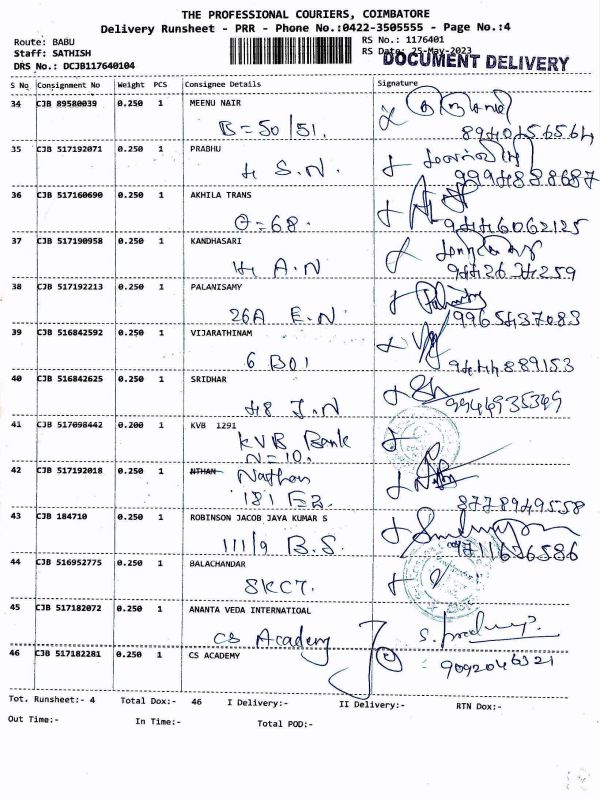 THE PROFESSIONAL COURIERS, COIMBATORE
Delivery Runsheet - PRR - Phone No.:0422-3505555 - Page No.:4
Route: BABU RS No.: 1176401
Staff: SATHISH RS Date: 25-May-2023
DRS No.: DCJB117640104 DOCUMENT DELIVERY
S No Consignment No Weight PCS Consignee Details Signature
34 CJB 89580039 0.250 1 MEENU NAIR
B=50/51.
35 CJB 517192071 0.250 1 PRABHU
4 S.N.
9994888687
36 CJB 517160690 0.250 1 AKHILA TRANS
θ=68. 94446062125
37 CJB 517190958 0.250 1 KANDHASARI
4 A.N
38 CJB 517192213 0.250 1 PALANISAMY
26A E.N. 19965437083
39 CJB 516842592 0.250 1 VIJARATHINAM
6 B01 9444889153
40 CJB 516842625 0.250 1 SRIDHAR
48 I.N 9944935349
41 CJB 517098442 0.200 1 KVB 1291
KVB Bank
N=10.
42 CJB 517192018 0.250 1 NTHAN Nathan
181 E2. 8778949558
43 CJB 184710 0.250 1 ROBINSON JACOB JAYA KUMAR S
111/9 B.S. 9711656586
44 CJB 516952775 0.250 1 BALACHANDAR
SKCT.
45 CJB 517182072 0.250 1 ANANTA VEDA INTERNATIOAL
CS Academy
46 CJB 517182281 0.250 1 CS ACADEMY : 9092046321
Tot. Runsheet:- 4 Total Dox:- 46 I Delivery:- II Delivery:- RTN Dox:-
Out Time:- In Time:- Total POD:-